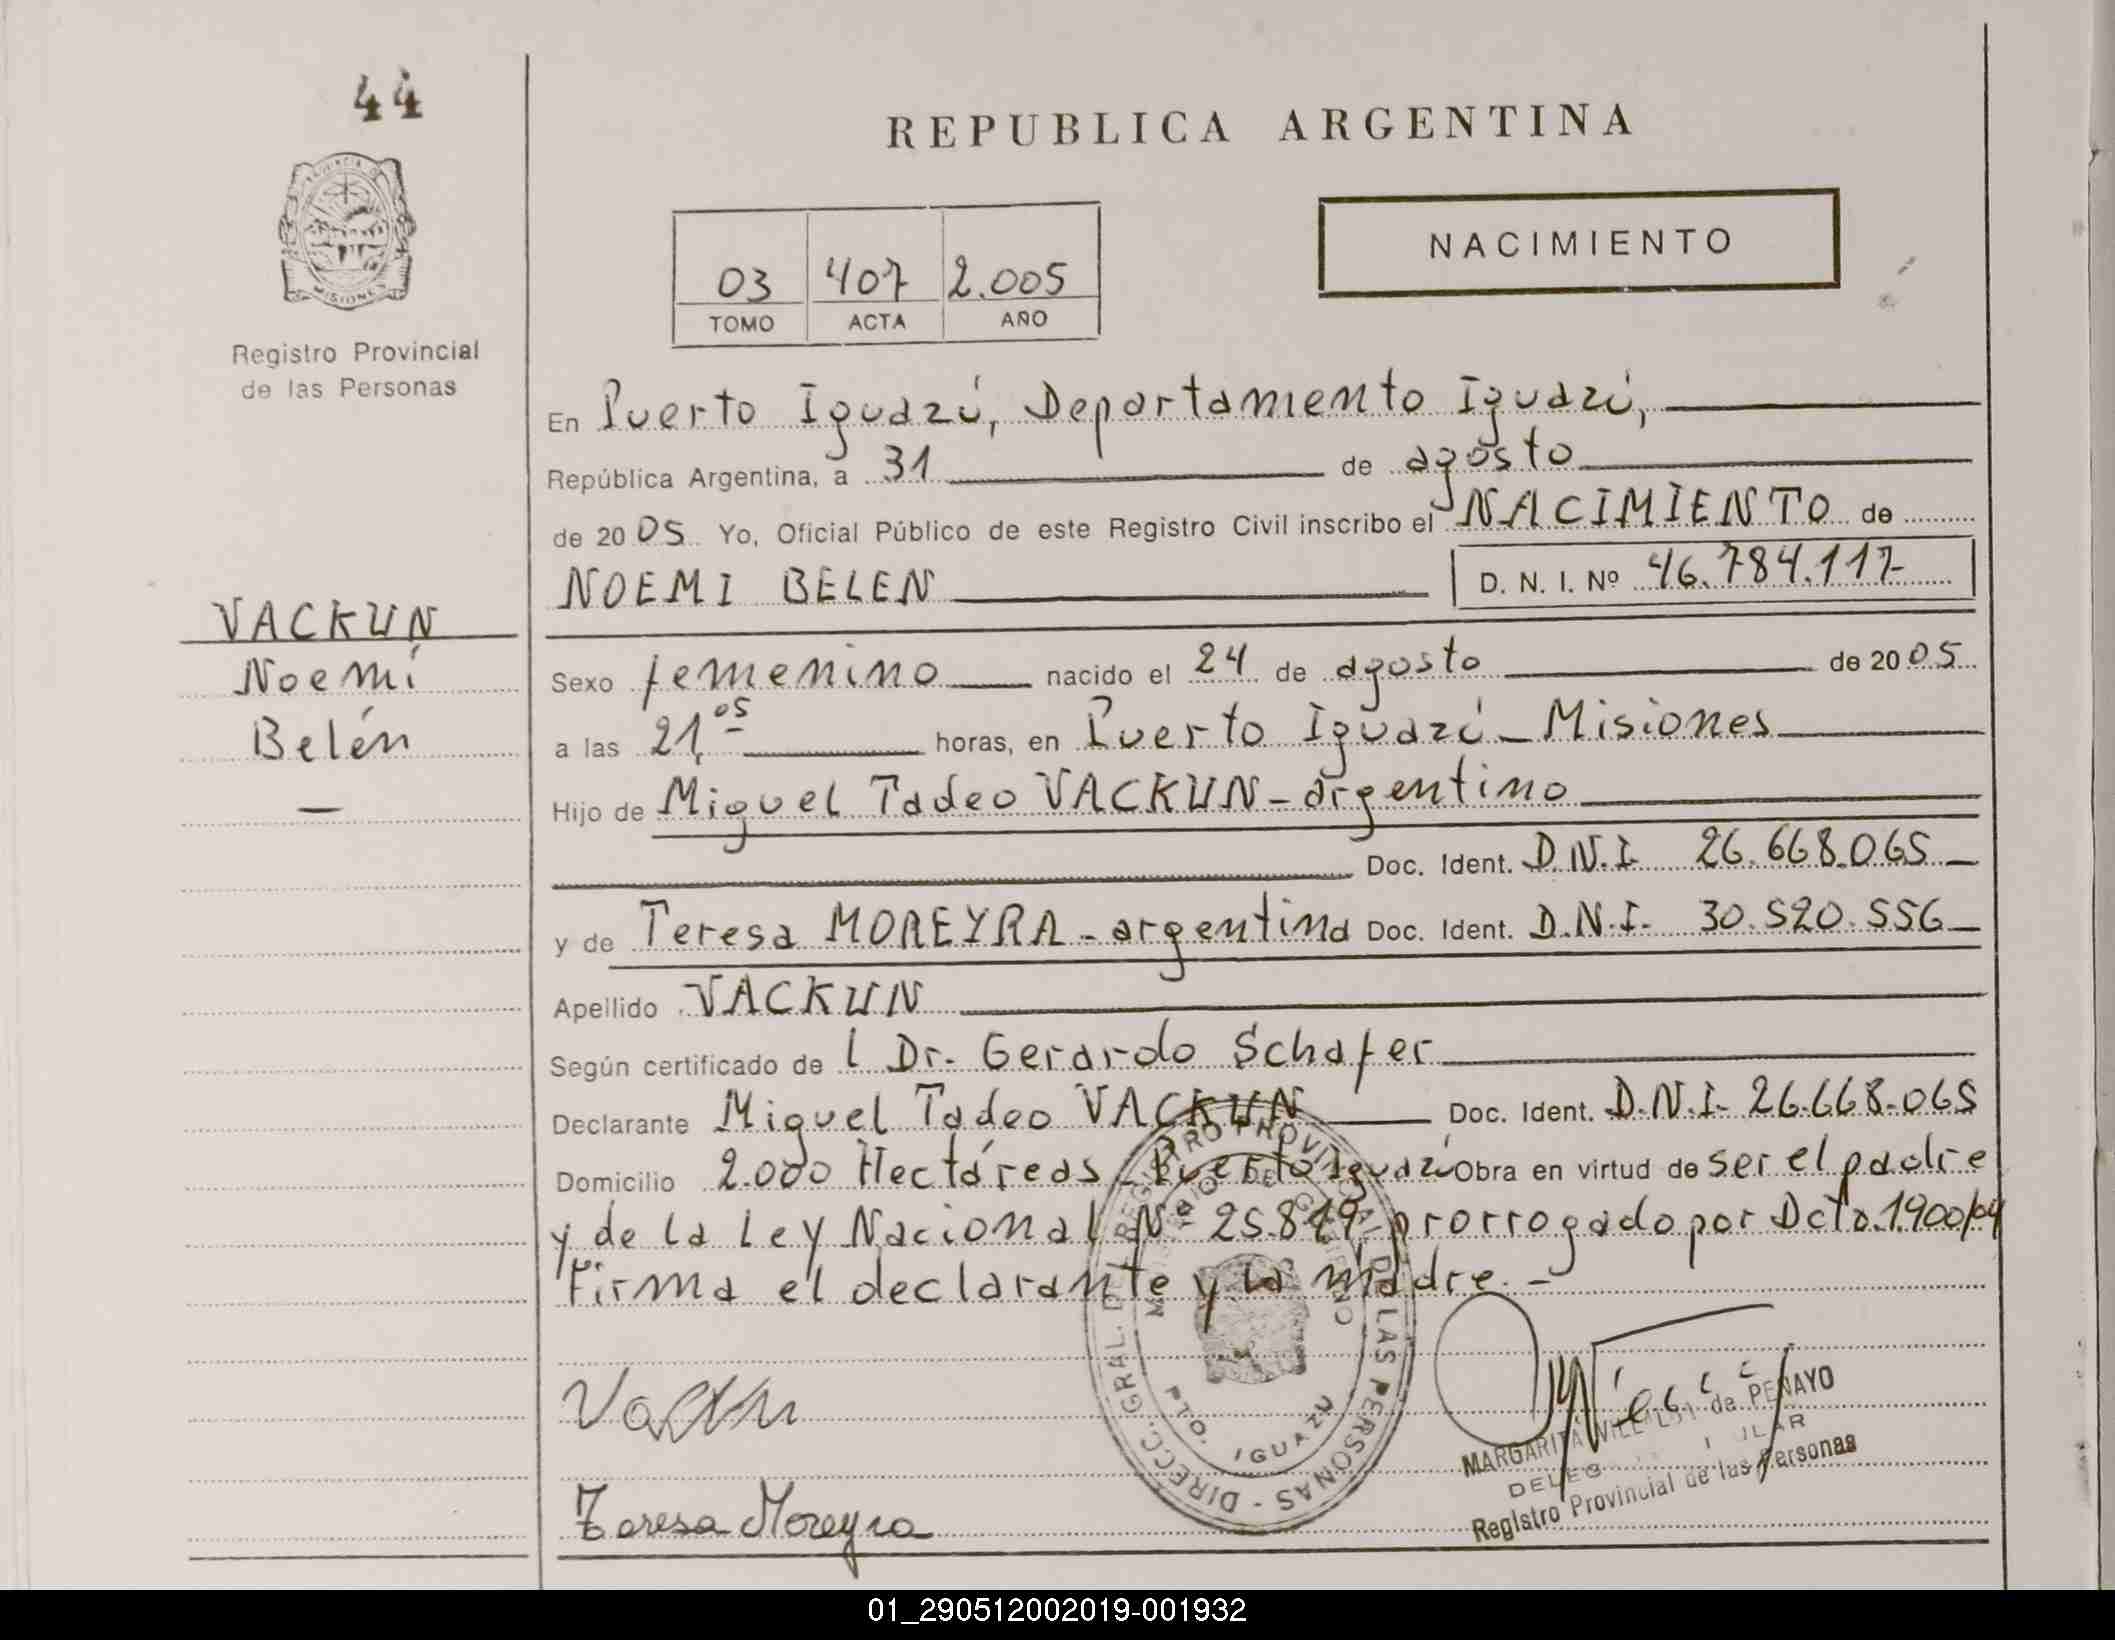 44
REPUBLICA ARGENTINA
PROVINCIA DE MISIONES
03 407 2.005
TOMO ACTA AÑO
NACIMIENTO
Registro Provincial
de las Personas
En Puerto Iguazú, Departamento Iguazú,
República Argentina, a 31 de agosto
de 2005 Yo, Oficial Público de este Registro Civil inscribo el NACIMIENTO de
NOEMI BELEN D. N. I. Nº 46.784.117-
VACKUN
Noemí
Belén
—
Sexo femenino nacido el 24 de agosto de 2005
a las 21,05 horas, en Puerto Iguazú - Misiones
Hijo de Miguel Tadeo VACKUN - argentino
Doc. Ident. D.N.I. 26.668.065
y de Teresa MOREYRA - argentina Doc. Ident. D.N.I. 30.520.556
Apellido VACKUN
Según certificado de l Dr. Gerardo Schafer
Declarante Miguel Tadeo VACKUN Doc. Ident. D.N.I. 26.668.065
Domicilio 2.000 Hectáreas - Puerto Iguazú Obra en virtud de ser el padre
y de la Ley Nacional Nº 25.819 prorrogado por Dcto. 1900/04
Firma el declarante y la madre.-
DIRECC. GRAL. DEL REGISTRO PROVINCIAL DE LAS PERSONAS
MINISTERIO DE GOBIERNO
PTO. IGUAZU
Teresa Moreyra
MARGARITA de PENAYO
Registro Provincial de las Personas
01_290512002019-001932